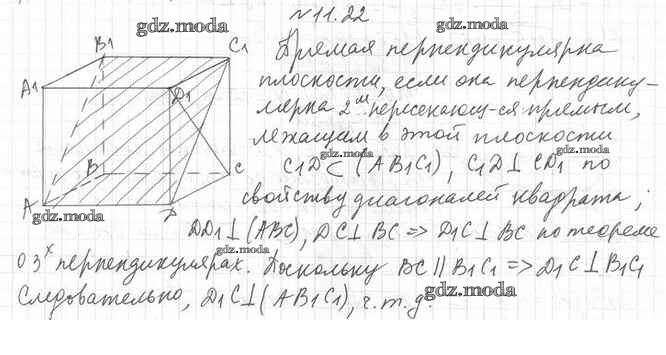 №11.22
gdz.moda
B1
C1
Прямая перпендикулярна
gdz.moda
A1
D1
плоскости, если она перпендику-
лярна 2ᵐ пересекающ-ся прямым,
лежащим в этой плоскости
gdz.moda
B
C
C1D ⊂ (AB1C1), C1D ⊥ CD1 по
A
D
gdz.moda
свойству диагоналей квадрата;
DD1 ⊥ (ABC), DC ⊥ BC => D1C ⊥ BC по теореме
gdz.moda
о 3ˣ перпендикулярах. Поскольку BC || B1C1 => D1C ⊥ B1C1
Следовательно, D1C ⊥ (AB1C1), ч.т.д.
gdz.moda